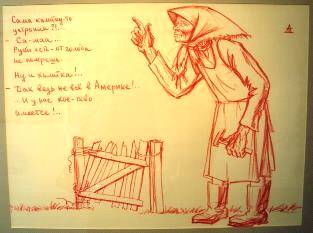 Сама калитку-то
?!..
- Са-маа...
Руки есть - от голода
не помрешь.
Ну и калитка!..
- Так ведь не всё в Америке!..
- И у нас кое-чего
имеется!..